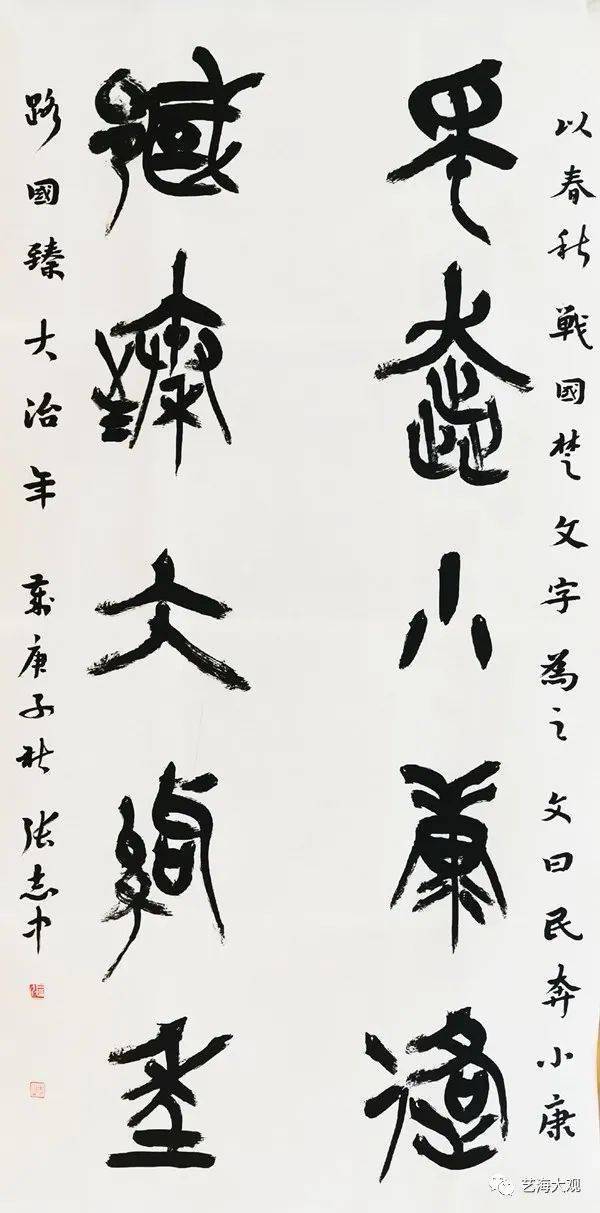 以春秋戰國楚文字為之 文曰民奔小康
民奔小康路
國臻大治年
路國臻大治年 歲庚子秋 張志中
艺海大观